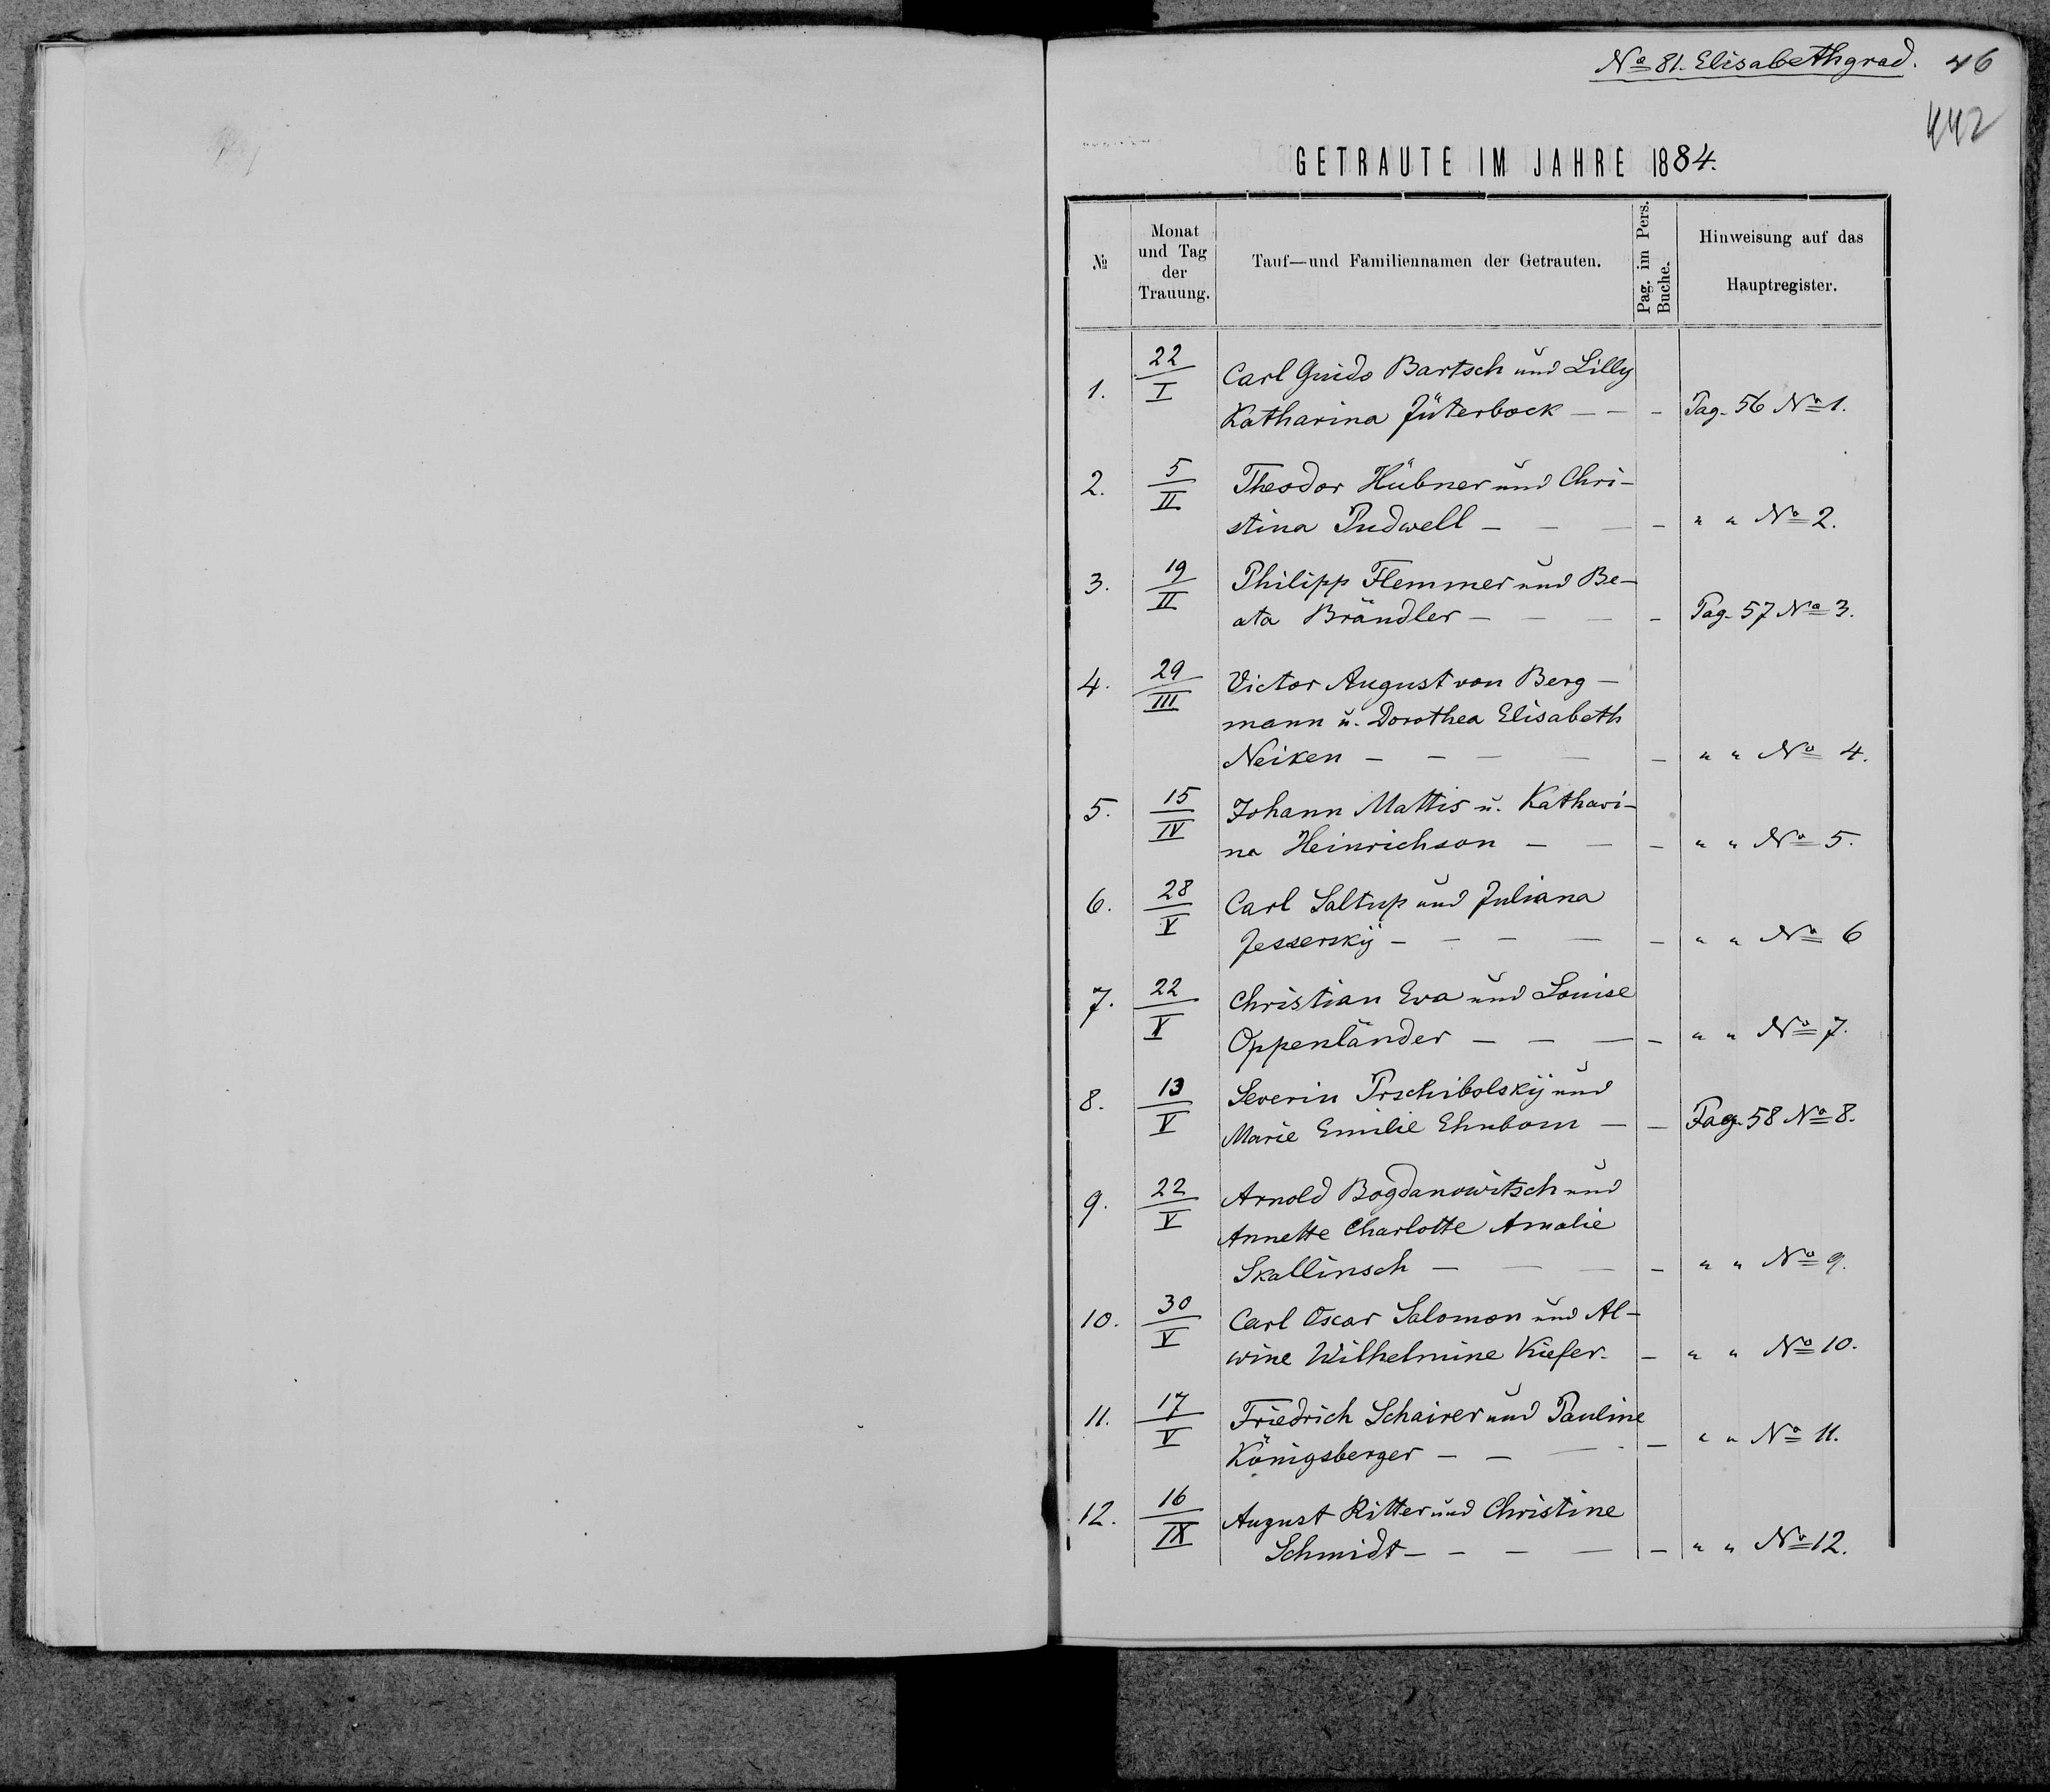 No 81. Elisabethgrad. 46
442
GETRAUTE IM JAHRE 1884.
№
Monat und Tag der Trauung.
Tauf—und Familiennamen der Getrauten.
Pag. im Pers. Buche.
Hinweisung auf das Hauptregister.
1. 22/I Carl Guido Bartsch und Lilly
Katharina Jüterbock — — — Pag. 56 No 1.
2. 5/II Theodor Hübner und Chri-
stina Pudwell — — — — " " No 2.
3. 19/II Philipp Flemmer und Be-
ata Brändler — — — — Pag. 57 No 3.
4. 29/III Victor August von Berg-
mann u. Dorothea Elisabeth
Neiken — — — — — " " No 4.
5. 15/IV Johann Mattis u. Kathari-
na Heinrichson — — — " " No 5.
6. 28/V Carl Saltup und Juliana
Jesserskÿ — — — — — " " No 6
7. 22/V Christian Eva und Louise
Oppenländer — — — — " " No 7.
8. 13/V Severin Prschibolskÿ und
Marie Emilie Ehnbom — — Pag. 58 No 8.
9. 22/V Arnold Bogdanowitsch und
Annette Charlotte Amalie
Skallinsch — — — — " " No 9.
10. 30/V Carl Oscar Salomon und Al-
wine Wilhelmine Kiefer. — " " No 10.
11. 17/V Friedrich Schairer und Pauline
Königsberger — — — — " " No 11.
12. 16/IX August Ritter und Christine
Schmidt — — — — — " " No 12.